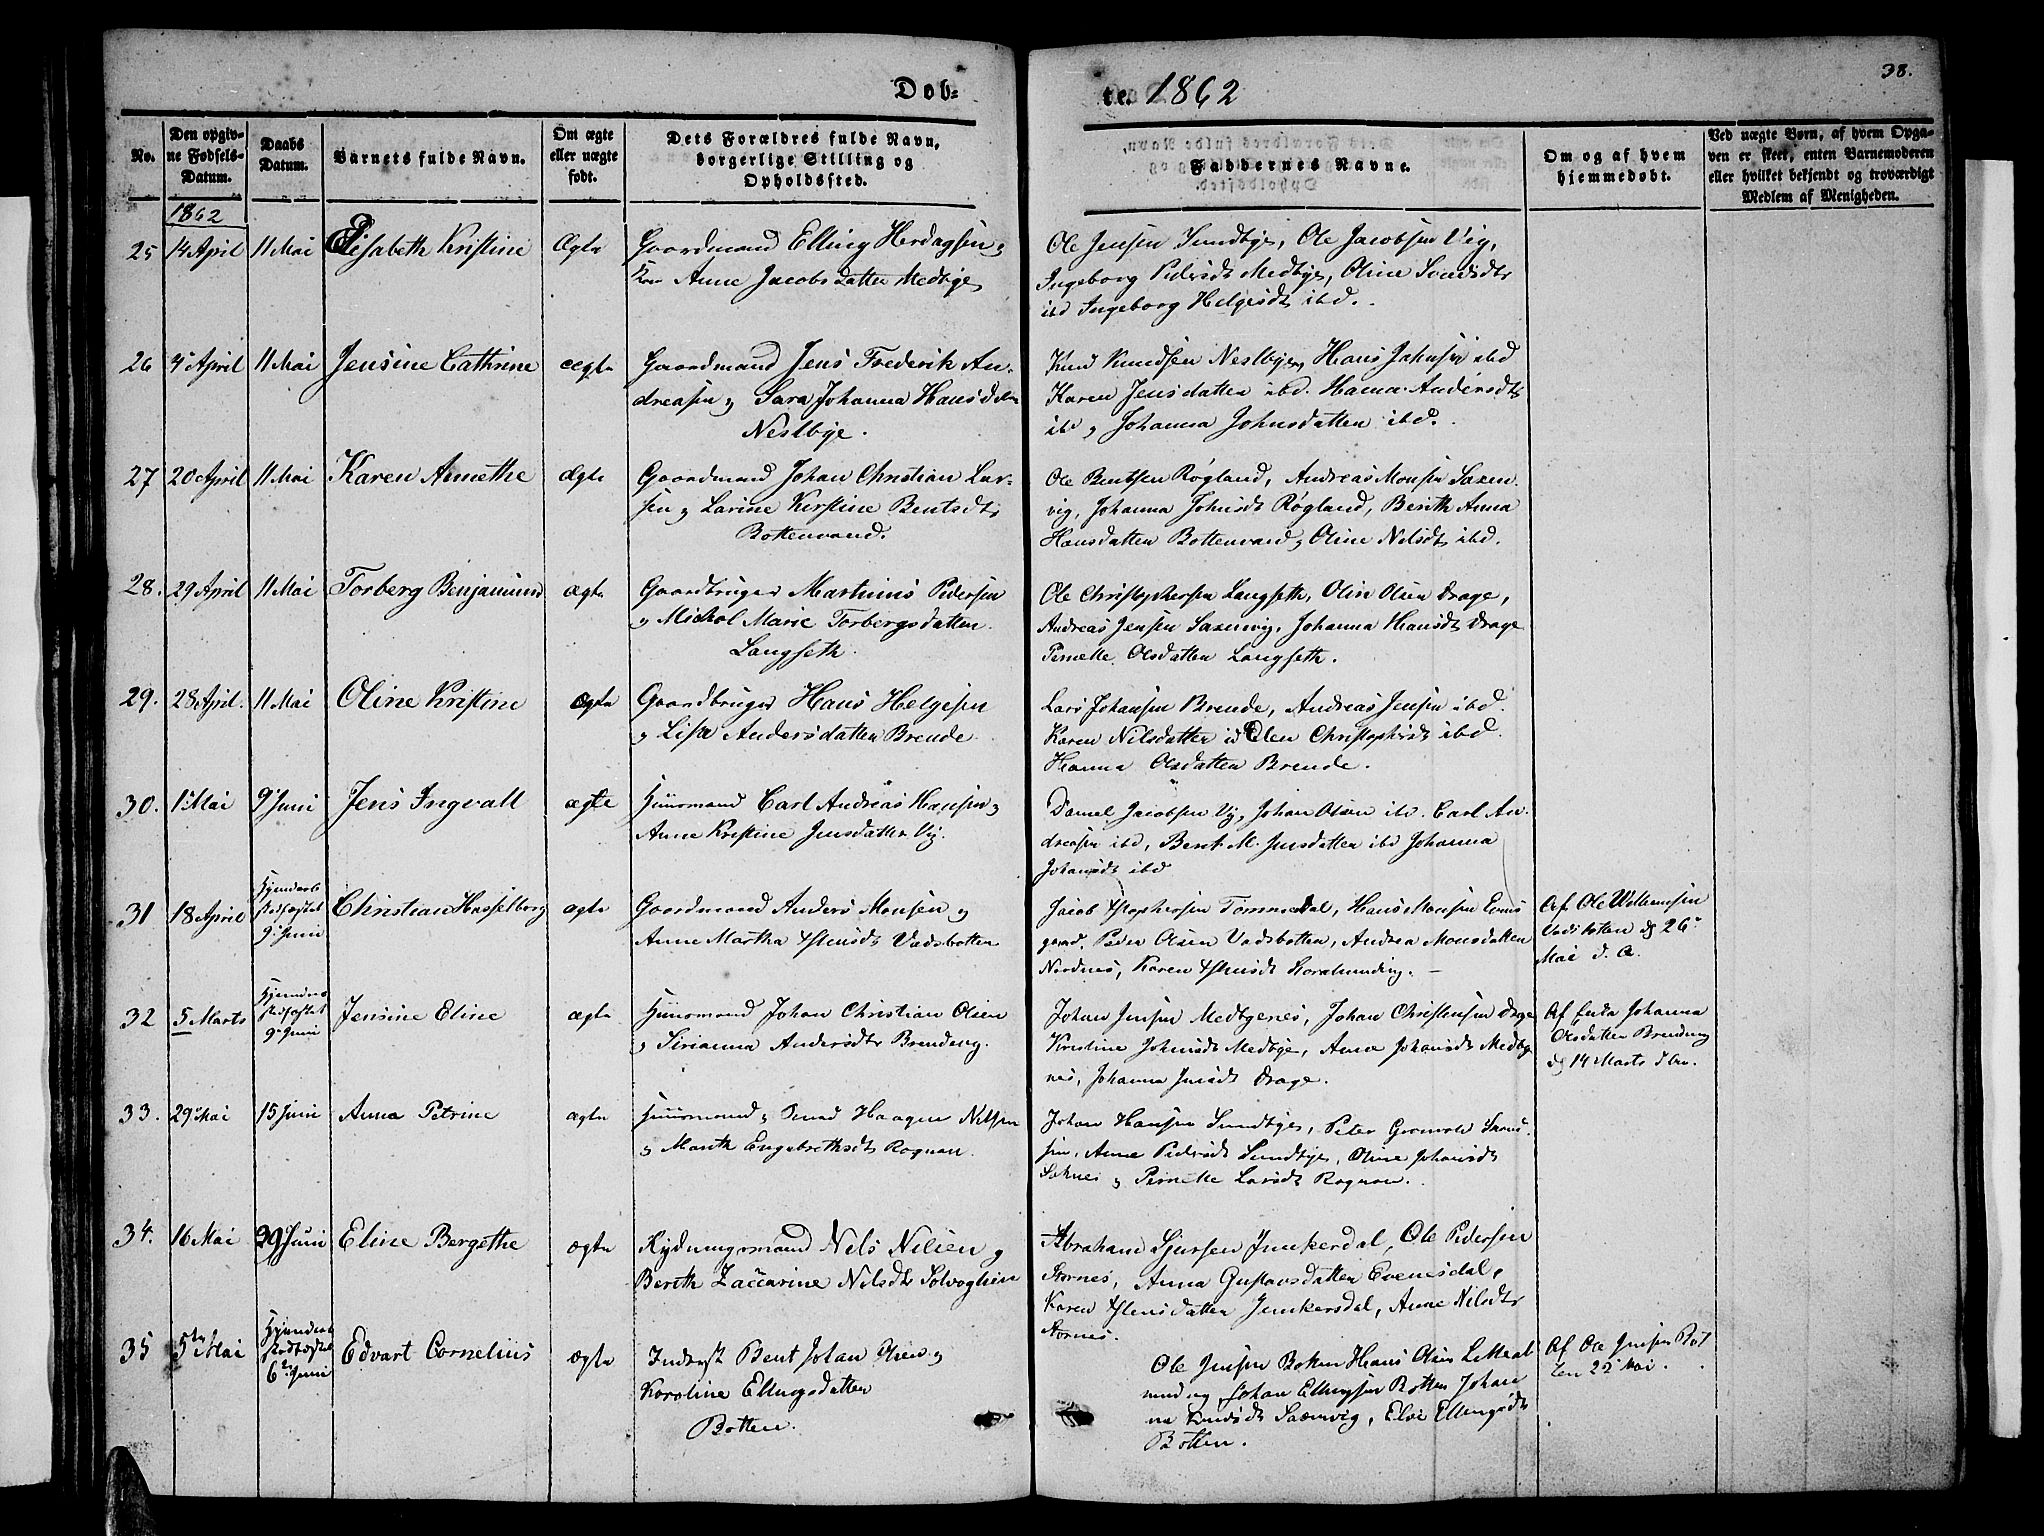 Døb-
te. 1862
38.
No.
Den opgiv-
ne Fødsels-
Datum.
Daabs
Datum.
Barnets fulde Navn.
Om ægte
eller uægte
født.
Dets Forældres fulde Navn,
borgerlige Stilling og
Opholdssted.
Faddernes Navne.
Om og af hvem
hjemmedøbt.
Ved uægte Børn, af hvem Opga-
ven er skeet, enten Barnemoderen
eller hvilket bekjendt og troværdigt
Medlem af Menigheden.
1862
25 14 April 11 Mai Elisabeth Kristine Ægte
Gaardmand Elling Herdagsen og
Kone Anne Jacobsdatter Medbye
Ole Jensen Sundbye, Ole Jacobsen Vig,
Ingeborg Pedersdt Medbye, Oline
ibd Ingeborg Helgesdt ibd.
26 4 April 11 Mai Jensine Cathrine ægte
Gaardmand Jens Frederik An-
dreasen og Sara Johanna Hansd
Neslbye.
Knud Knudsen Neslbye, Hans Johnsen ibd
Karen Jensdatter ibd. Hanna Andersdt
ibd og Johanna Johnsdatter ibd.
27 20 April 11 Mai Karen Annethe Ægte
Gaardmand Johan Christian Lar-
sen og Larine Kirstine Bentsdt
Bottenvand.
Ole Bentsen Røgland, Andreas Monsen Saxen
vig, Johanna Johnsdt Røgland, Berith Anna
Hansdatter Bottenvand, Oline Nilsdt ibd.
28. 29 April 11 Mai Torberg Benjamin ægte
Gaardbruger Martinus Pedersen
og Mickol Marie Torbergsdatter
Langseth.
Ole Christophersen Langseth, Olin Olsen Drage,
Andreas Jensen Saxenvig, Johanna Hansdt Drage
Pernelle Olsdatter Langseth.
29. 28 April. 11 Mai Oline Kristine Ægte
Gaardbruger Hans Helgesen
og Lisa Andersdatter Brende
Lars Johansen Brende, Andreas Jensen ibd.
Karen Nilsdatter Elen Christophersdt ibd.
Hanna Olsdatter Brende.
30. 1 Mai 9 Juni Jens Ingvall ægte
Huusmand Carl Andreas Hansen og
Anne Kristine Jensdatter Vig.
Daniel Jacobsen Vig, Johan Olsen ibd. Carl An-
dreasen ibd, Berit M. Jensdatter ibd Johanna
Johansdt ibd
31 18 April Hjemdøbt
stadfæstet
9 Juni Christian Hasselborg ægte
Gaardmand Anders Monsen og
Anne Martha Vadsbotten
Jacob Tommedal, Hans Monsen Evens
gaard, Peder Olsen Vadsbotten, Andrea Monsdatter
Nordnes, Karen
Af Ole Wilhemsen
Vadsbotten d 26
Mai d. A.
32 5 Marts Hjemdøbt
stadfæstet
9 Juni Jensine Eline ægte
Huusmand Johan Christian Olsen
og Sirianna Andersdtr Brending.
Johan Jensen Medbyenes, Johan Christensen Drage
Kristine Johnsdt Medbye, Anne Johansdt Medby
nes, Johanna Jensdt Drage.
Af Enke Johanna
Olsdatter Brending
d 14 Marts d An.
33. 29 Mai 15 Juni Anna Petrine ægte
Huusmand Haagen Nilsen
og Marith Engebrethsdt Rognan.
Johan Hansen Sundbye, Peter Gronvold
sen, Anne Pedersdt Sundbye, Oline Johansdt
Saknes og Pernelle Larsdt Rognan.
34. 16 Mai 29 Juni Eline Bergethe ægte
Rydningsmand Nils Nilsen og
Berith Zaccarine Nilsdt Solvoglien
Abraham Sjursen Junkerdal, Ole Pedersen
Stornes, Anna Gustavsdatter Evenesdal,
Karen Junkersdal, Anne Nilsdtr
Stornes.
35 5 Mai Hjemdøbt
stadfæstet
6 Juni Edvart Cornelius ægte
Inderst Bent Johan Olsen og
Karoline Ellingsdatter
Botten.
Ole Jensen Botten Hans Olsen
Johan Ellingsen Botten Johan
na Saxenvig, Ellingsdt
Botten.
Af Ole Jensen Bot
ten 25 Mai.